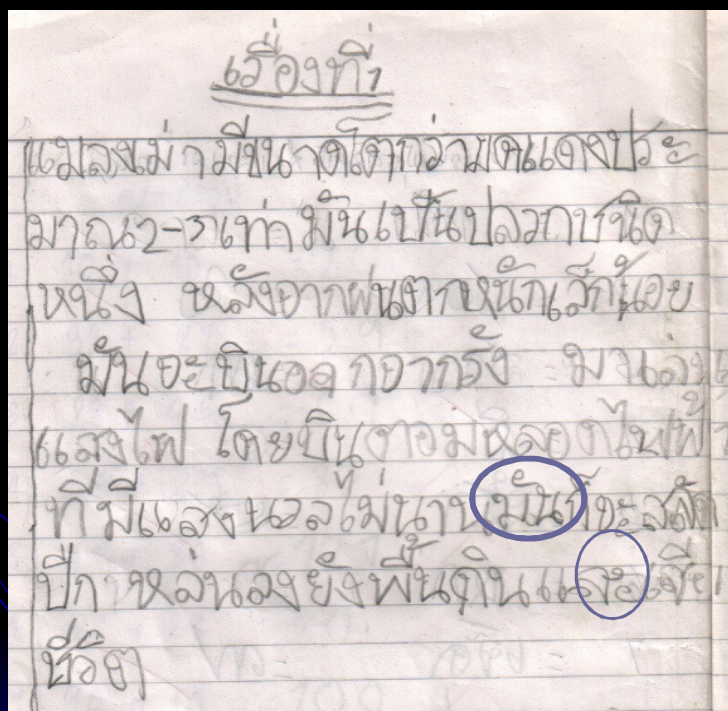 เรื่องที่1
แมลงเม่ามีขนาดโตกว่ามดแดงประ
มาณ2-3เท่า มันเป็นปลวกชนิด
หนึ่ง หลังจากฝนตกหนักเล็กน้อย
มันจะบินออกจากรัง มาเล่น
แสงไฟ โดยบินตอมหลอดไฟฟ้า
ที่มีแสงนวลไม่นานมันก็จะสลัด
ปีกหล่นลงยังพื้นดินและเสีย
ชีวิต